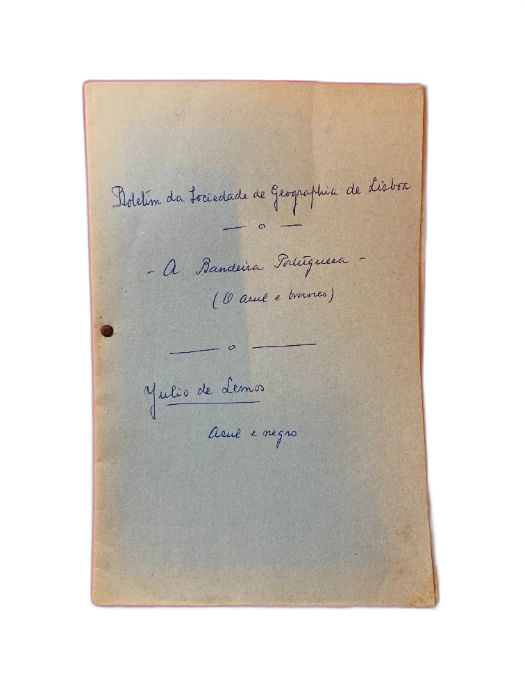 Boletim da Sociedade de Geographia de Lisboa
— o —
- A Bandeira Portugueza -
(O azul e branco)
— o —
Julio de Lemos
Azul e negro